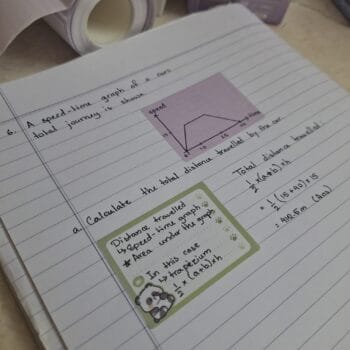 6. A speed-time graph of a cars
total journey is shown
speed
15
time
0
10
25
40
a. Calculate the total distance travelled by the car
Distance travelled
↳ Speed-time graph
* Area under the graph
In this case
↳ trapezium
1/2 × (a+b) × h
Total distance travelled
1/2 × (a+b) × h
= 1/2 × (15+40) × 15
= 412.5m (Ans)